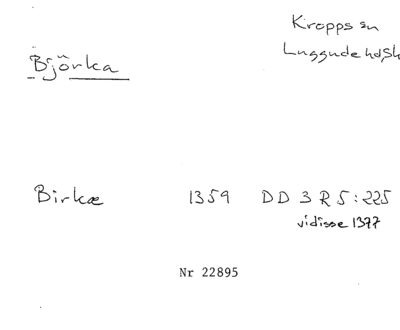 Kropps sn
Luggude hd, Sk
Björka
Birkæ 1359 DD 3 R 5:225
vidisse 1377
Nr 22895